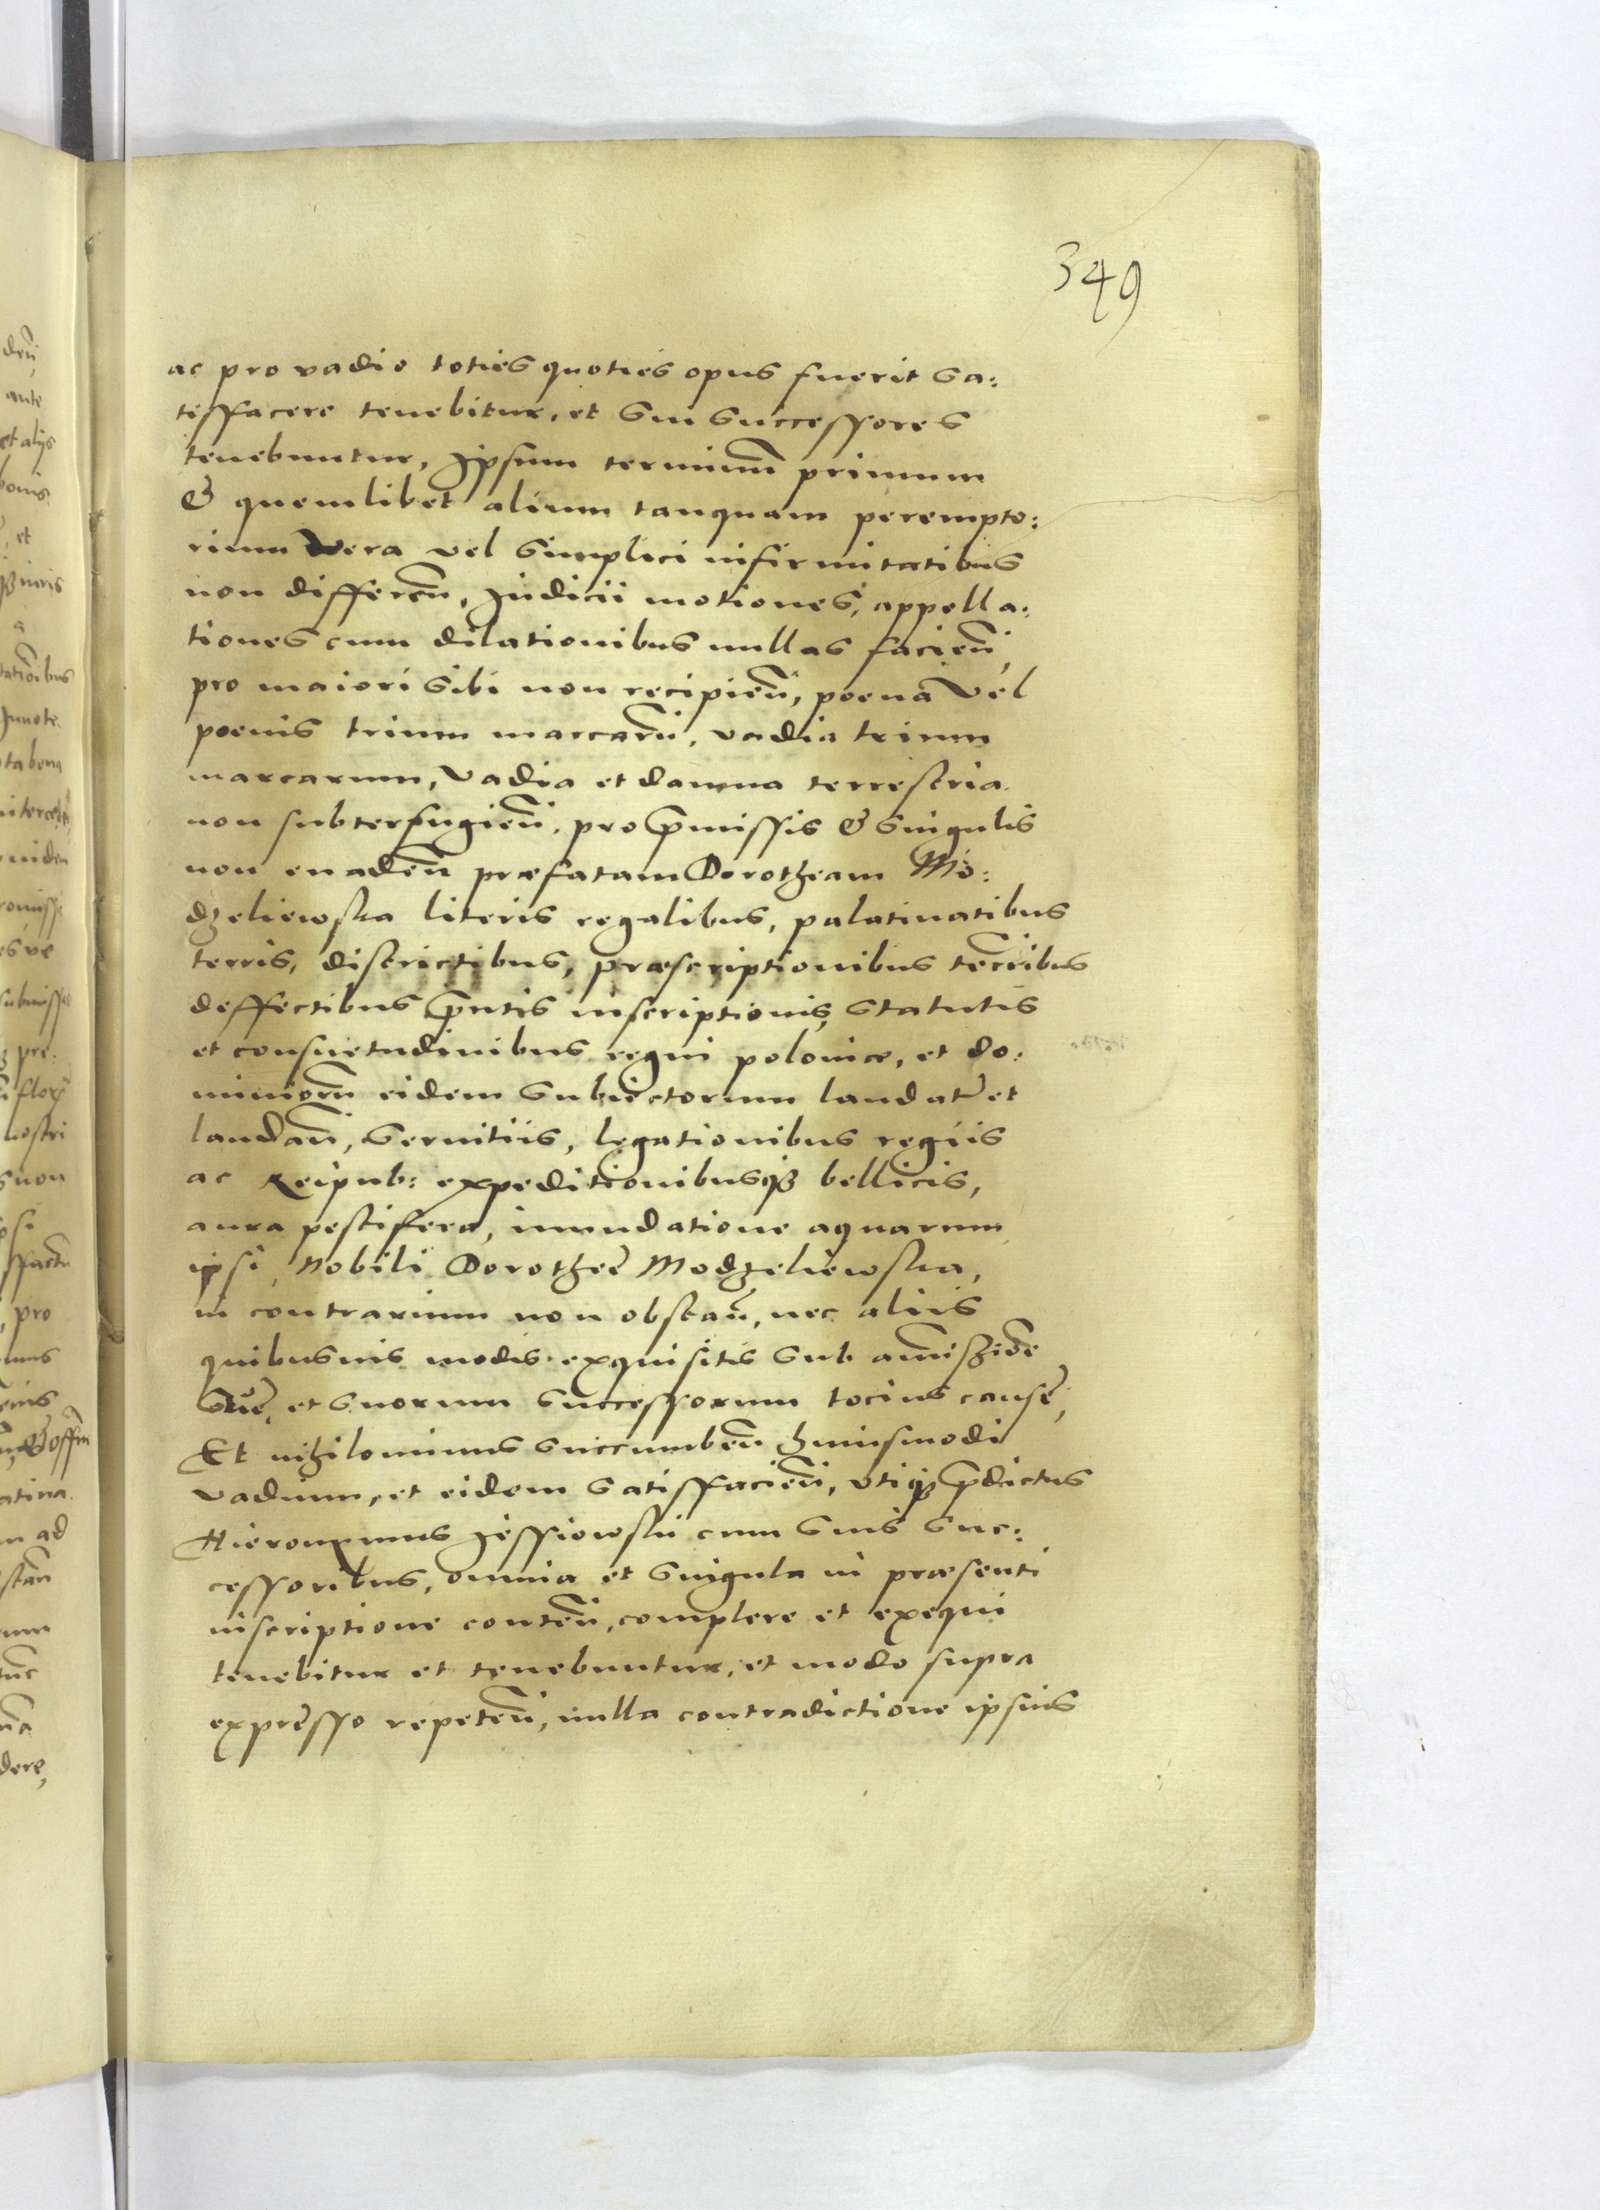 349
ac pro vadio toties quoties opus fuerit sa:
tisfacere tenebitur, et sui successores
tenebuntur, Ipsum terminũ primum
& quemlibet alium tanquam perempto:
rium Vera vel simplici infirmitatibus
non differeñ, Judicii motiones, appella:
tiones cum dilationibus nullas facieñ,
pro maiori sibi non recipieñ, poena vel
poenis trium marcarũ, vadia trium
marcarum, vadia et damna terrestria
non subterfugieñ, pro p̃missis & singulis
non euadeñ præfatam Dorotheam Mo:
dzeliewska literis regalibus, palatinatibus
terris, districtibus, præscriptionibus terr̃ibus
deffectibus p̃ntis inscriptionis, statutis
et consuetudinibus regni poloniæ, et do:
miniorũ eidem subiectorum laudat̃ et
laudañ, seruitiis, legationibus regiis
ac Reipub: expeditionibusq3 bellicis,
aura pestifera, inundatione aquarum
ipsi Nobili Dorotheæ Modzeliewska,
in contrarium non obstañ, nec aliis
quibusuis modis exquisitis sub amissiõe
suæ, et suorum successorum tocius causæ,
Et nihilominus succumbeñ huiusmodi
vadium, et eidem satisfacieñ, vtiq3 p̃dictus
Hieronymus Jessiowski cum suis suc:
cessoribus, omnia et singula in præsenti
inscriptione conteñ, complere et exequi
tenebitur et tenebuntur, et modo supra
expresso repeteñ, nulla contradictione ipsius